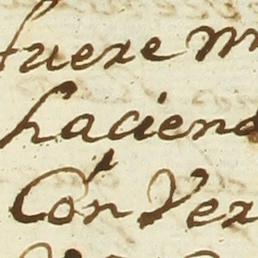 fuere m
haciend
Con Ver